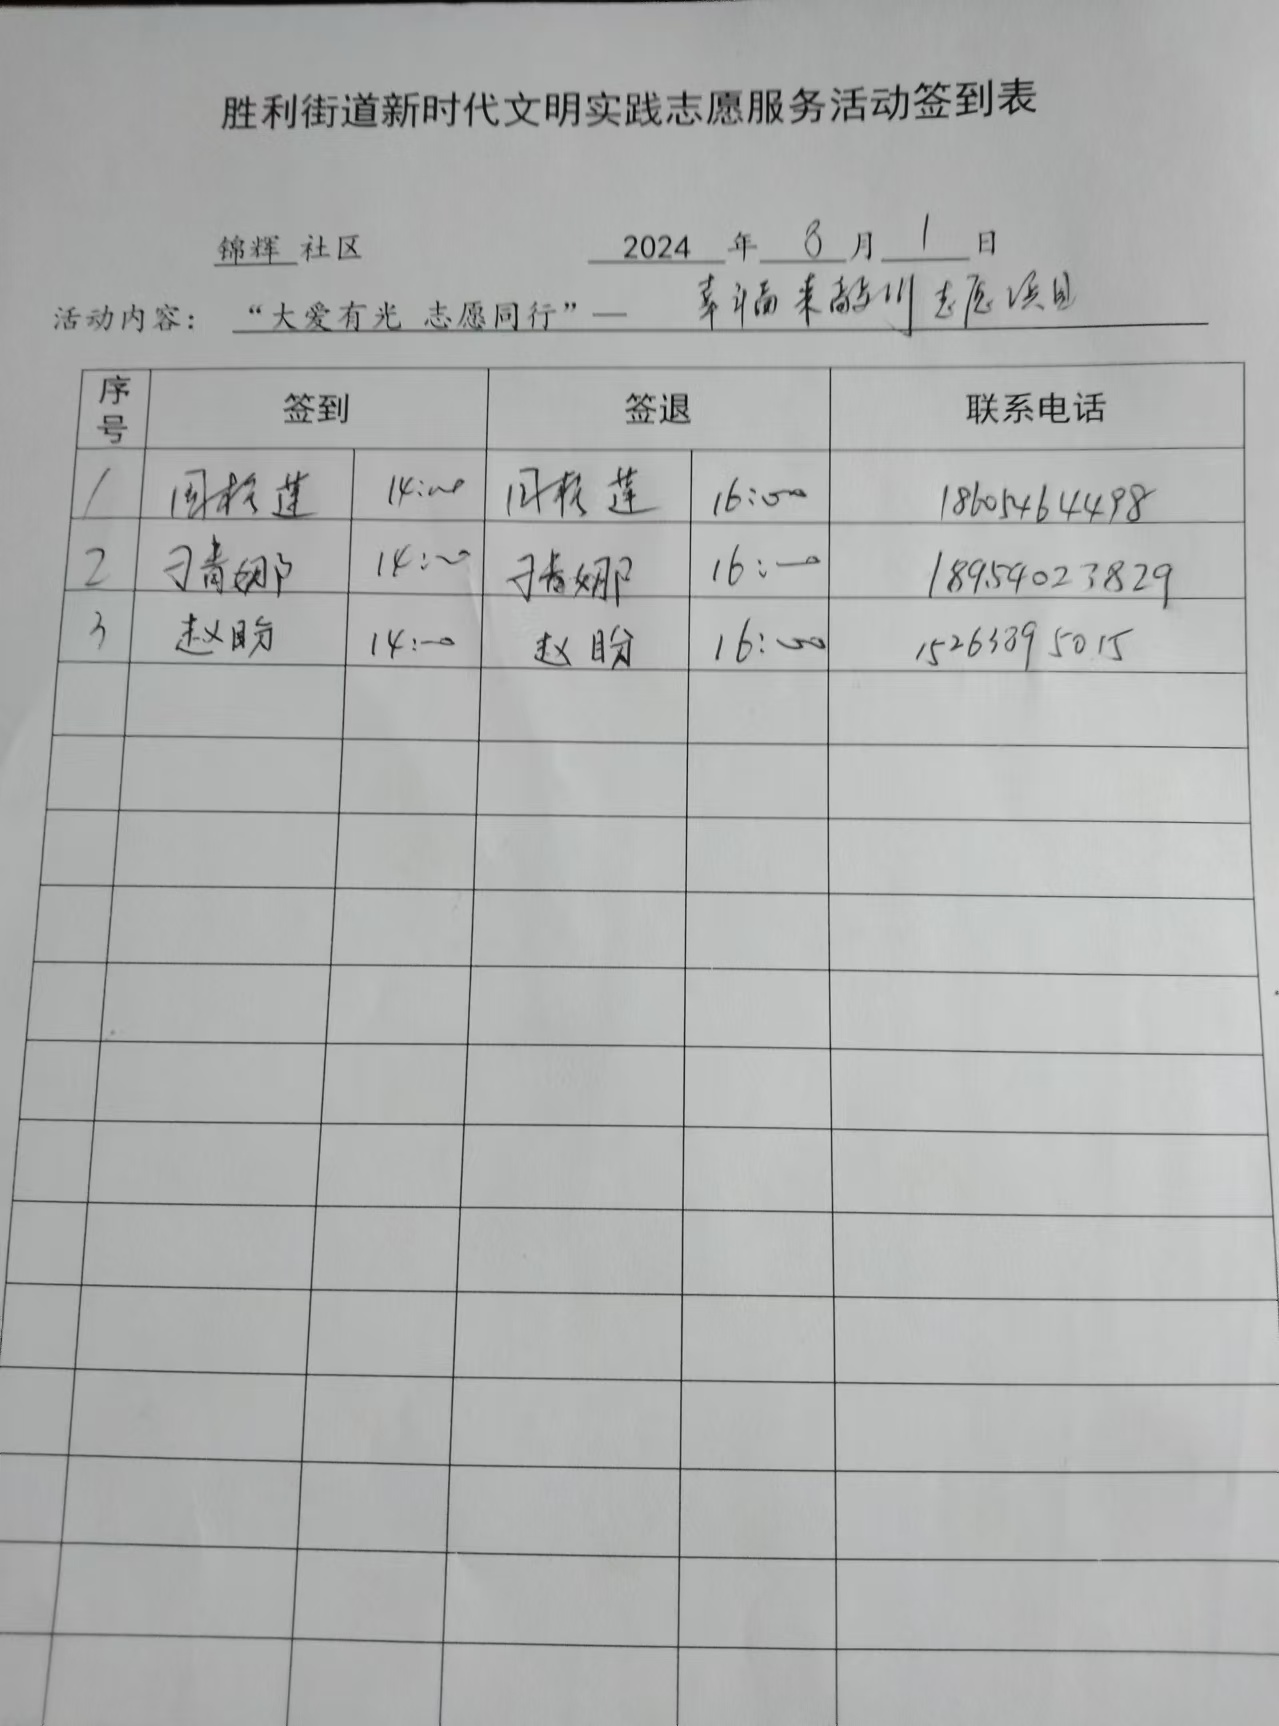 胜利街道新时代文明实践志愿服务活动签到表
锦辉 社区 2024 年 8 月 1 日
活动内容： “大爱有光 志愿同行”— 幸福来敲门志愿项目
序号 签到 签退 联系电话
1 周桂莲 14:00 周桂莲 16:00 18605464498
2 刁青娜 14:00 刁青娜 16:00 18954023829
3 赵盼 14:00 赵盼 16:00 15263395015